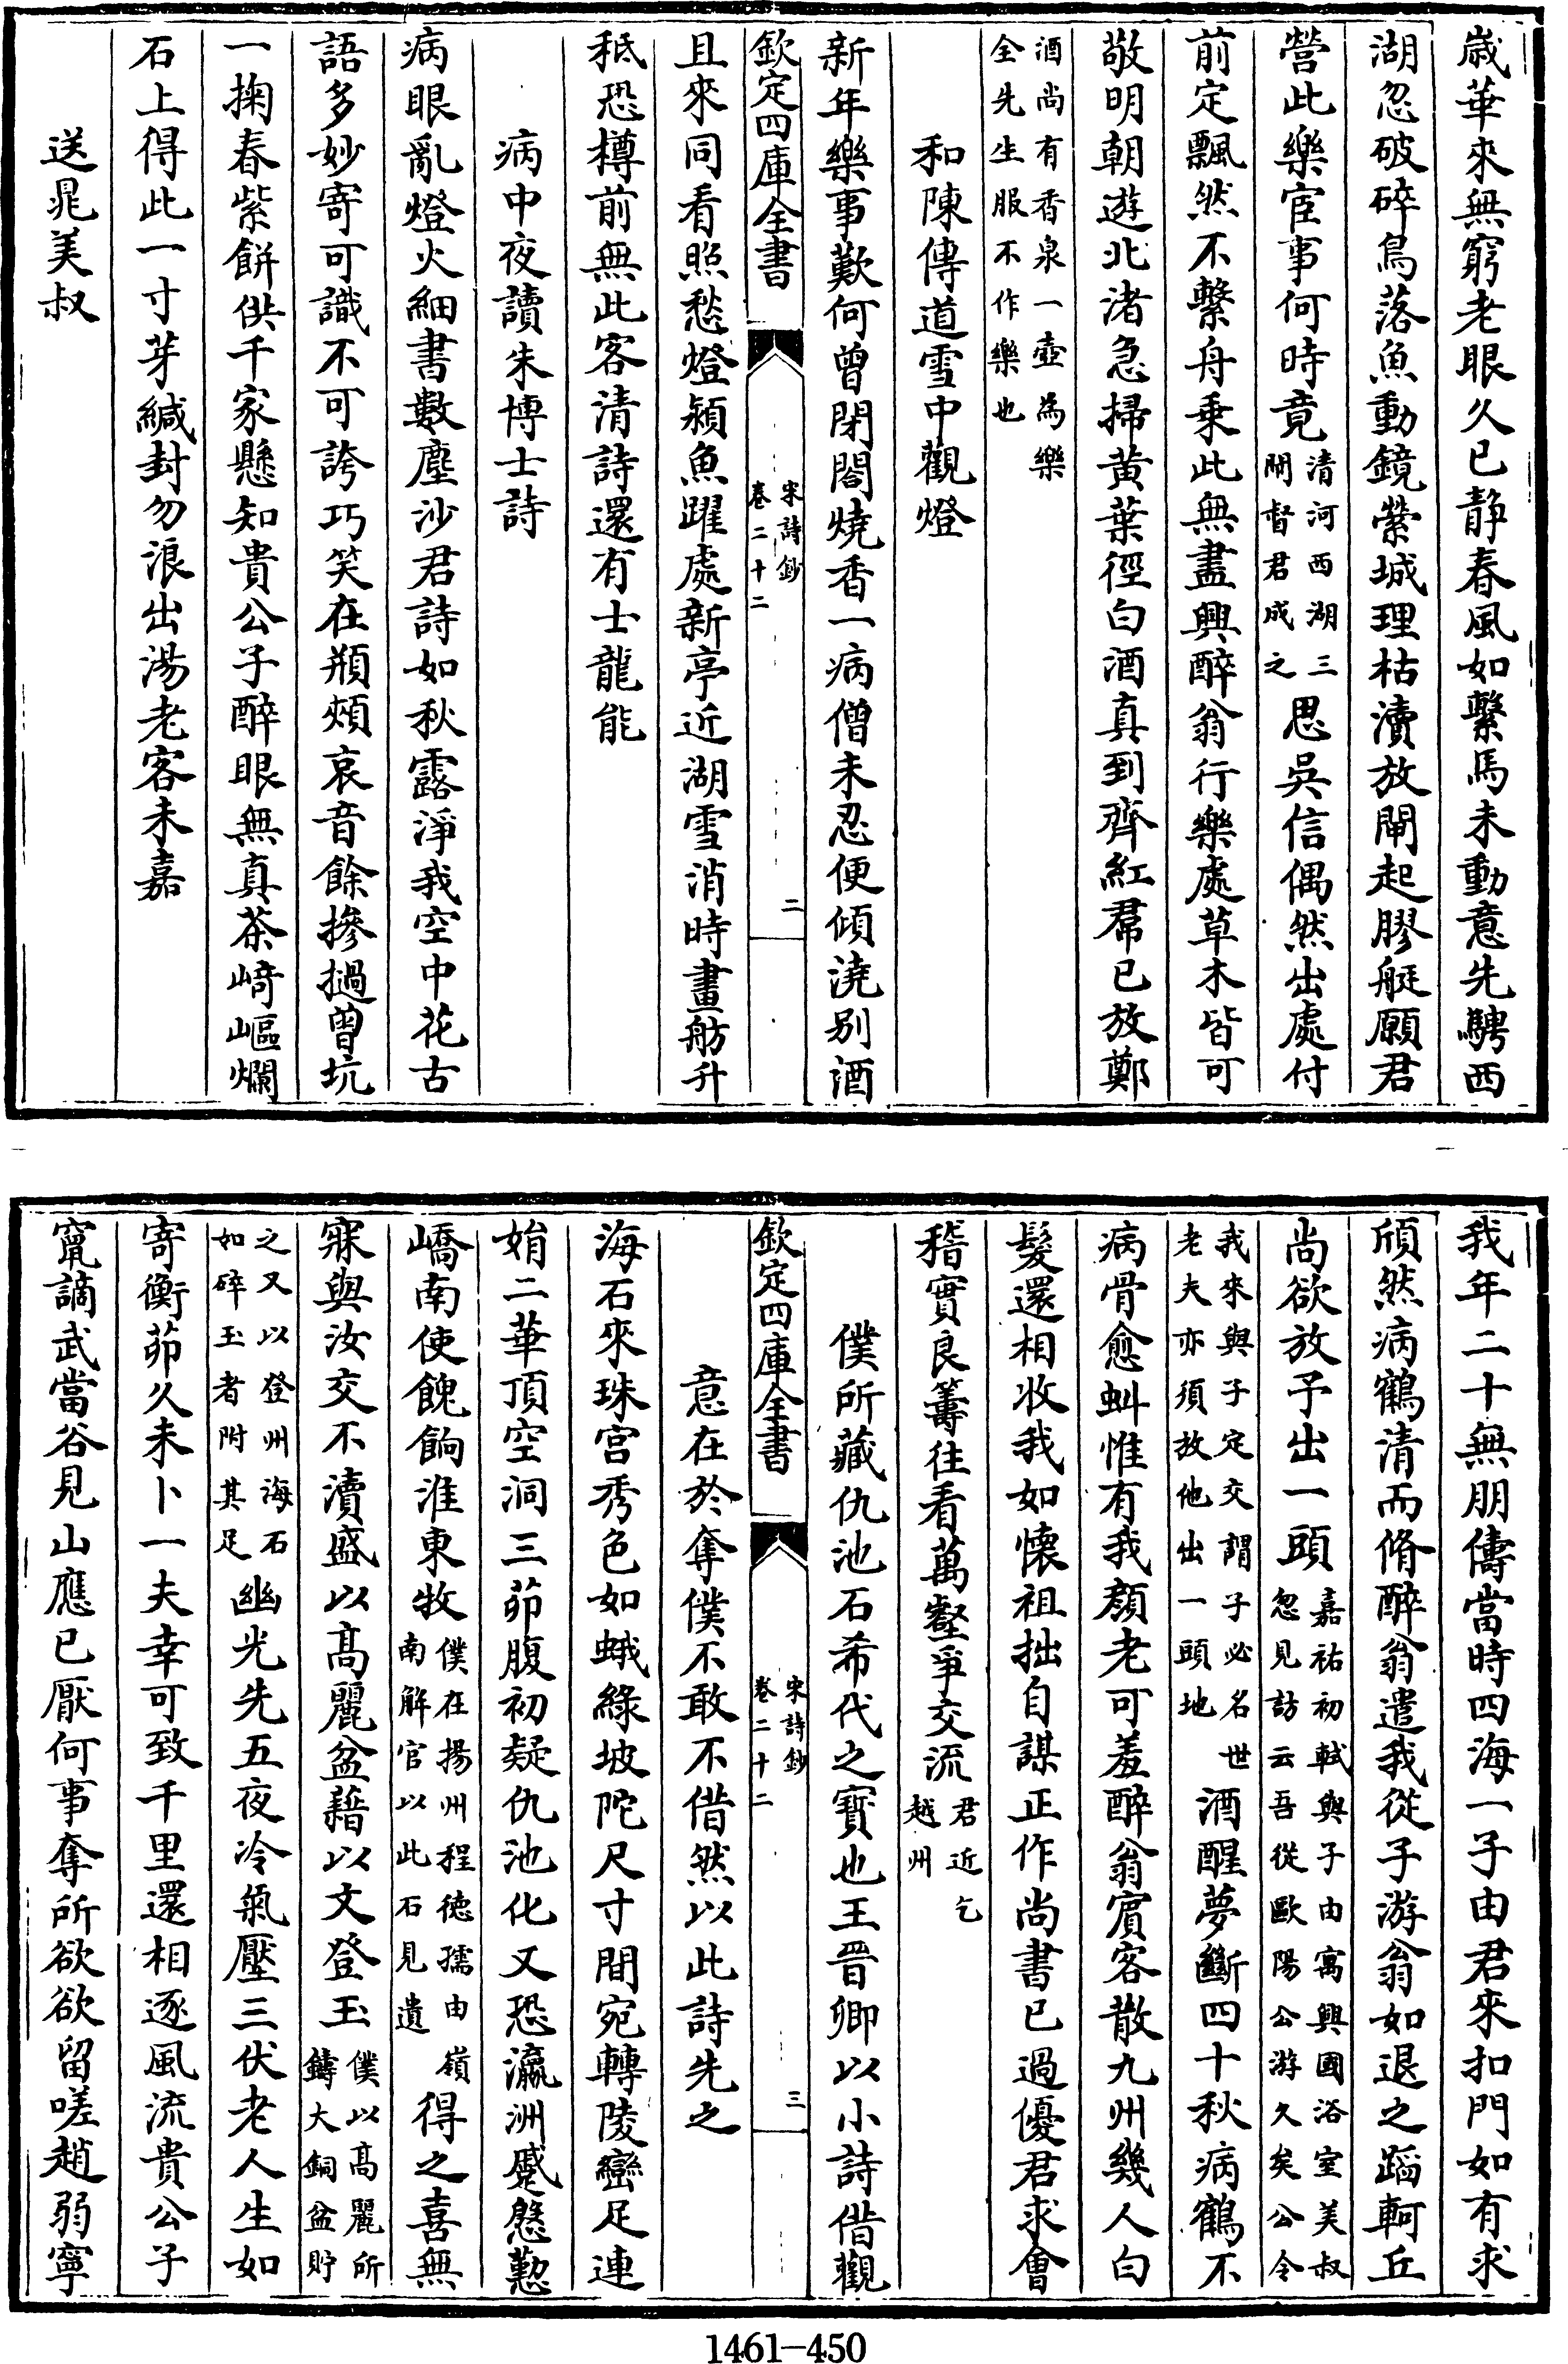 歲華來無窮老眼久已静春風如繫馬未動意先騁西
湖忽破碎鳥落魚動鏡縈城理枯瀆放閘起膠艇願君
營此樂宦事何時竟清河西湖三閘督君成之思吳信偶然出處付
前定飄然不繫舟乗此無盡興醉翁行樂處草木皆可
敬明朝遊北渚急掃黄葉徑白酒真到齊紅帬已放鄭
酒尚有香泉一壺為樂全先生服不作樂也
和陳傳道雪中觀燈
新年樂事歎何曾閉閤燒香一病僧未忍便傾澆别酒
欽定四庫全書
宋詩鈔
卷二十二
二
且來同看照愁燈潁魚躍處新亭近湖雪消時畫舫升
秪恐樽前無此客清詩還有士龍能
病中夜讀朱博士詩
病眼亂燈火細書數塵沙君詩如秋露淨我空中花古
語多妙寄可識不可誇巧笑在頩頰哀音餘摻撾曾坑
一掬春紫餅供千家懸知貴公子醉眼無真茶崎嶇爛
石上得此一寸芽緘封勿浪出湯老客未嘉
送晁美叔
我年二十無朋儔當時四海一子由君來扣門如有求
頎然病鶴清而脩醉翁遣我從子游翁如退之蹈軻丘
尚欲放予出一頭嘉祐初軾與子由寓興國浴室美叔忽見訪云吾從歐陽公游久矣公令
我來與子定交謂子必名世老夫亦須放他出一頭地酒醒夢斷四十秋病鶴不
病骨愈虯惟有我顔老可羞醉翁賓客散九州幾人白
髮還相收我如懷祖拙自謀正作尚書已過優君求會
稽實良籌往看萬壑爭交流君近乞越州
僕所藏仇池石希代之寳也王晋卿以小詩借觀
欽定四庫全書
宋詩鈔
卷二十二
三
意在於奪僕不敢不借然以此詩先之
海石來珠宫秀色如蛾緑坡陀尺寸間宛轉陵巒足連
娟二華頂空洞三茆腹初疑仇池化又恐瀛洲蹙慇懃
嶠南使餽餉淮東牧僕在揚州程德孺由嶺南解官以此石見遺得之喜無
寐與汝交不瀆盛以髙麗盆藉以文登玉僕以髙麗所鑄大銅盆貯
之又以登州海石如碎玉者附其足幽光先五夜冷氣壓三伏老人生如
寄衡茆久未卜一夫幸可致千里還相逐風流貴公子
竄謫武當谷見山應已厭何事奪所欲欲留嗟趙弱寧
1461-450